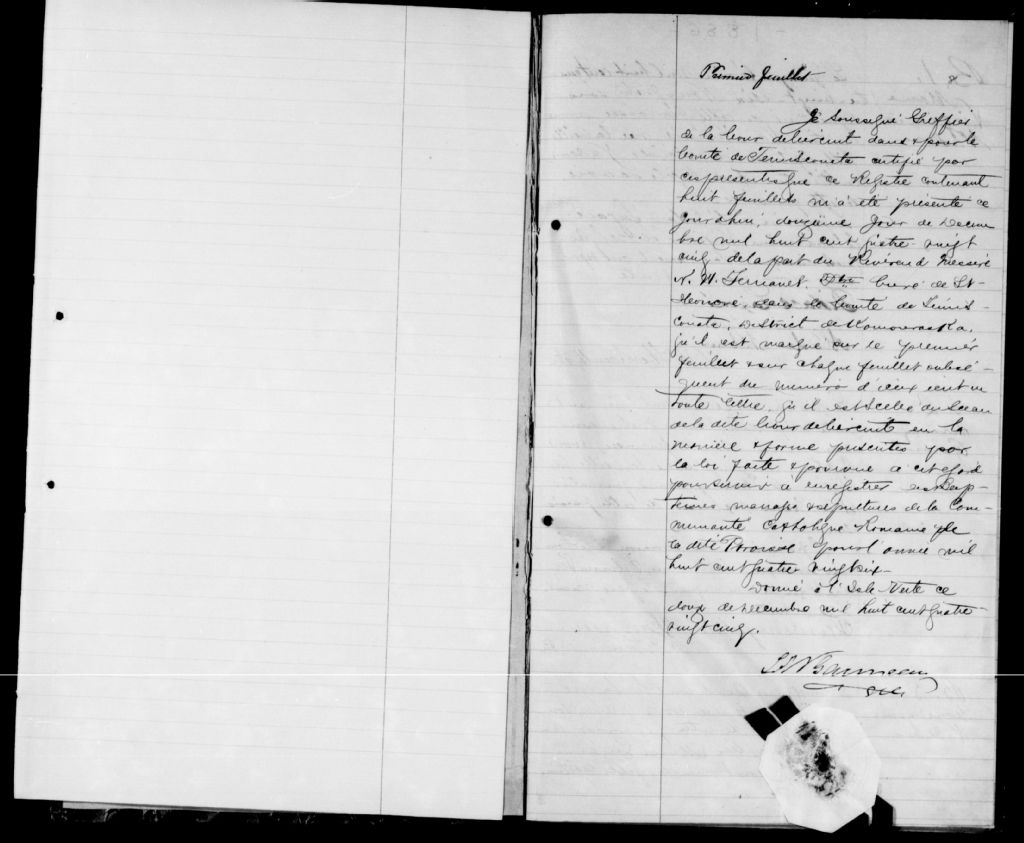 Premier feuillet
Je Soussigné Greffier
de la Cour de Circuit dans & pour le
Comté de Temiscouata certifie par
ces presentes que ce Registre contenant
huit feuillets m'a été présenté ce
Jourdhui, douzième Jour de Decem
bre mil huit cent quatre vingt
cinq - de la part du Révérend Messire
Ptre Curé de St-
Honoré, dans le Comté de Temis-
couata, District de Kamouraska,
qu'il est marqué sur le premier
feuillet & sur chaque feuillet subsé-
quent du numéro d'iceux écrit en
toute lettre, qu'il est Scellé du Sceau
de la dite Cour de Circuit en la
manière & forme presentes par
la loi faite & pourvue à cet égard
pour servir à enregistrer les Bap-
temes mariages & sépultures de la Com-
munauté Catholique Romaine de
la dite Paroisse pour l'année mil
huit cent quatre vingt six -
Donné à l'Isle-Verte ce
douze de décembre mil huit cent quatre-
vingt cinq.